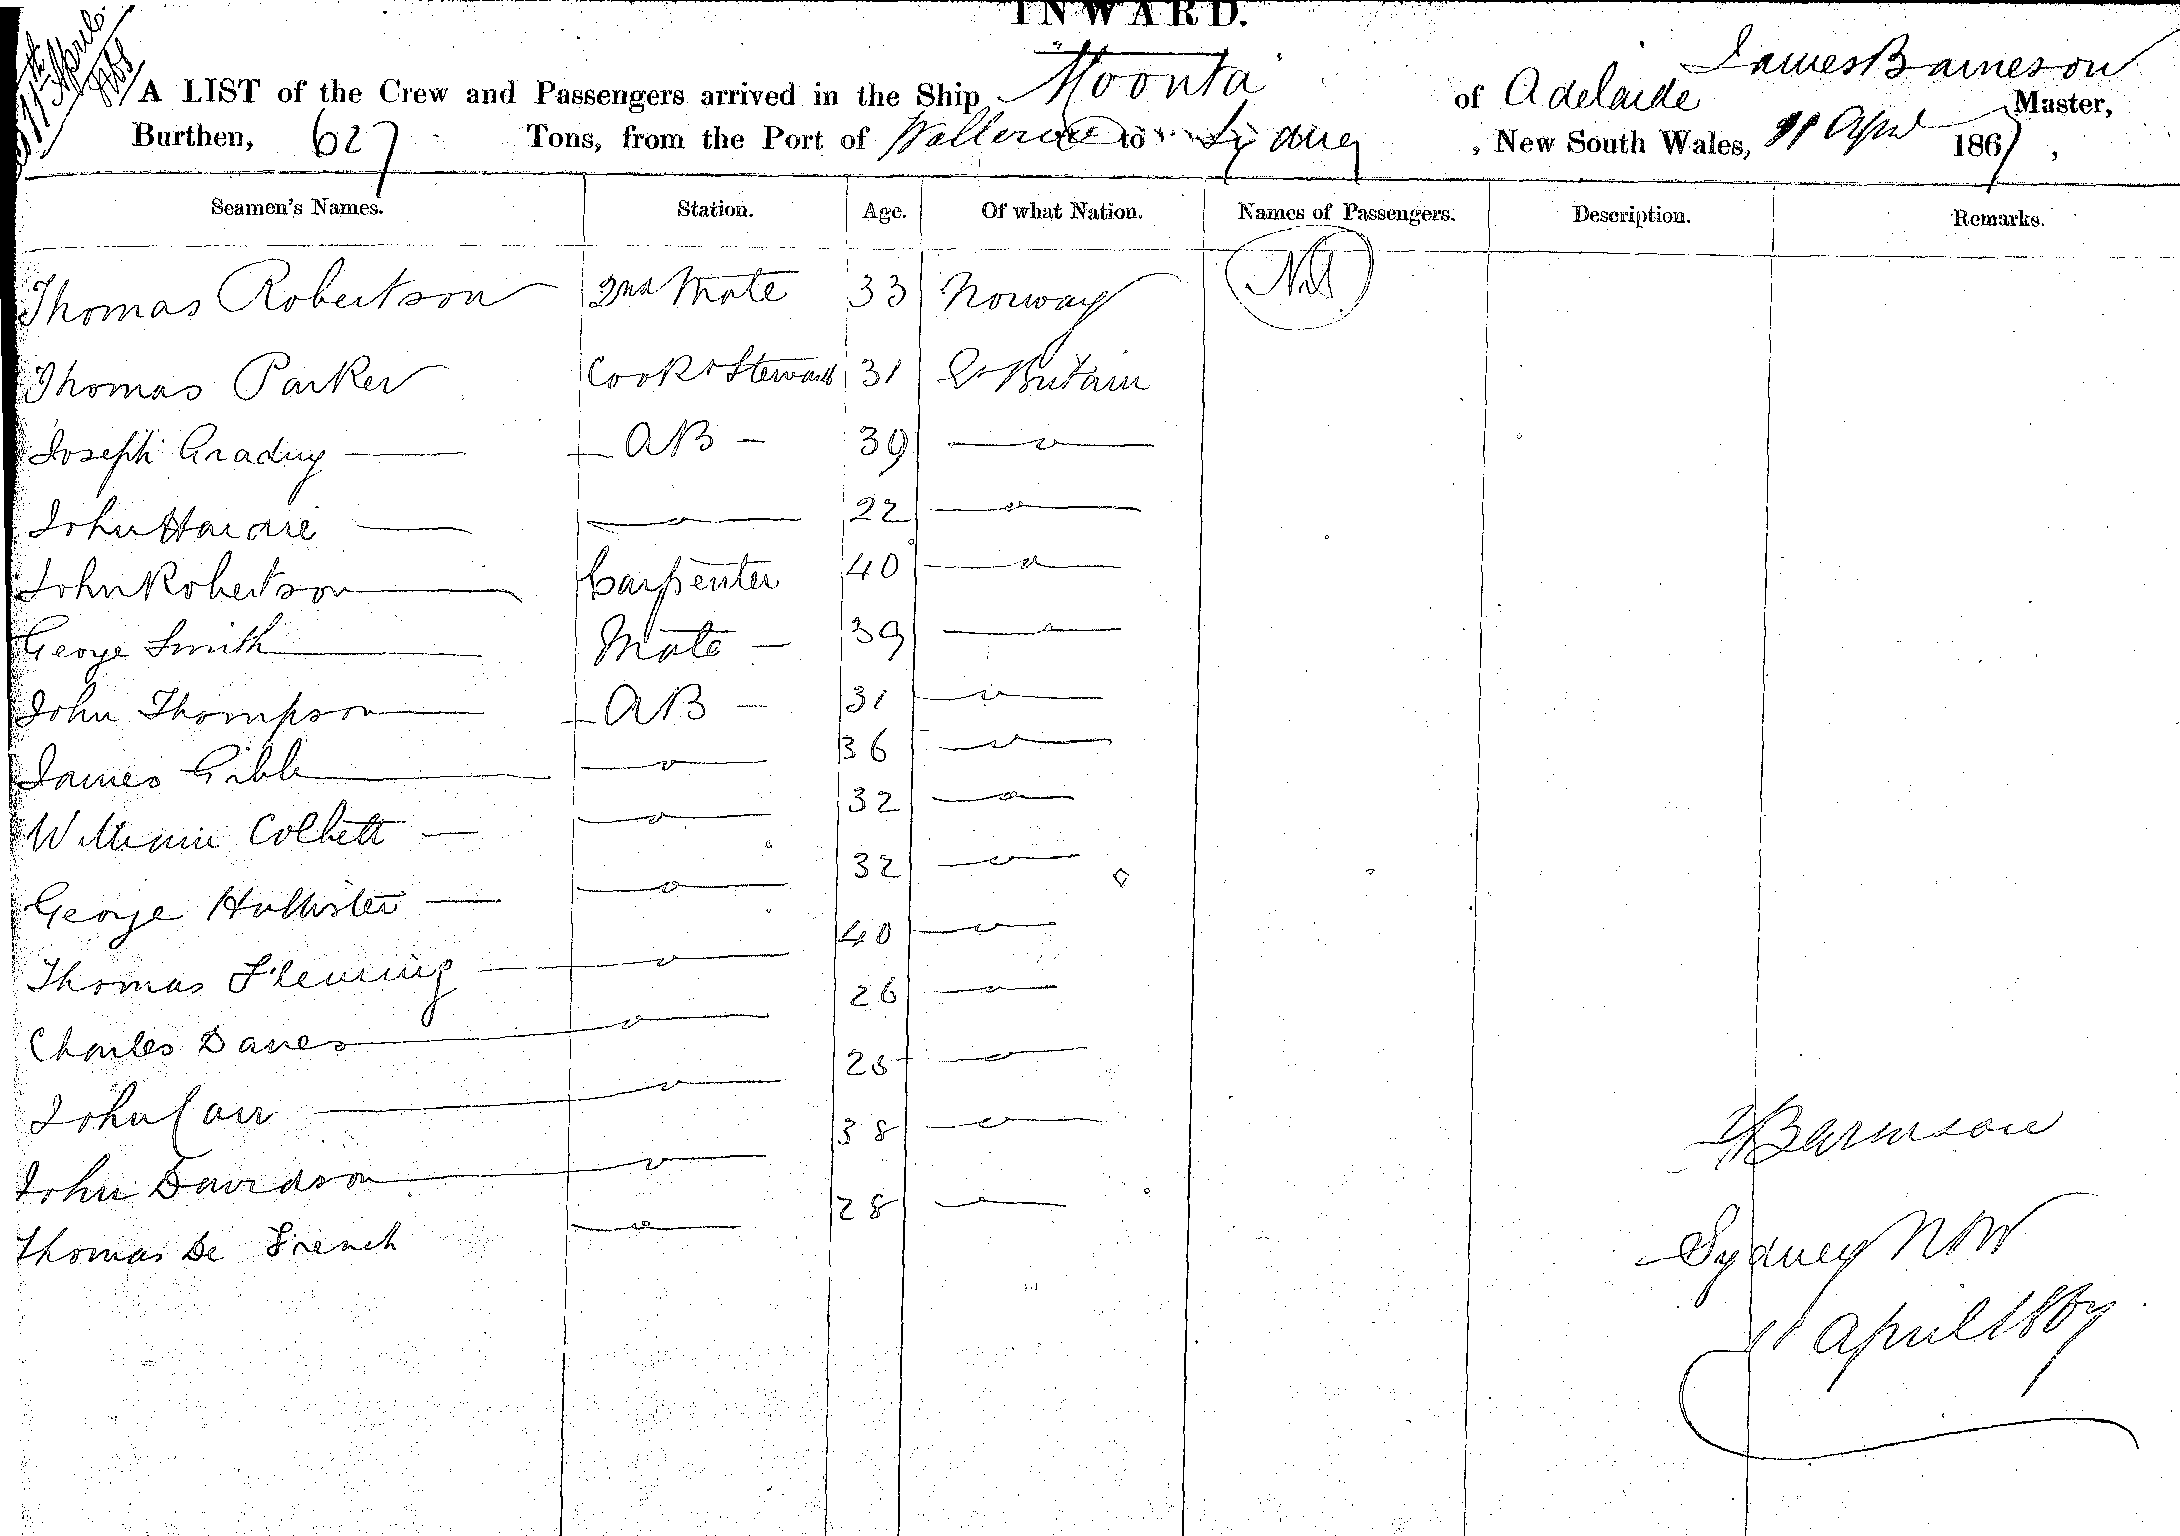 INWARD.
11th April
A LIST of the Crew and Passengers arrived in the Ship Moonta of Adelaide James Barneson Master,
Burthen, 627 Tons, from the Port of Wallaroo to Sydney, New South Wales, April 1867,
Seamen's Names. Station. Age. Of what Nation. Names of Passengers. Description. Remarks.
Thomas Robertson 2nd Mate 33 Norway Nil
Thomas Parker Cook & Steward 31 Gt Britain
Joseph AB 39 — o —
John Hardie — o — 22 — o —
John Robertson Carpenter 40 — o —
George Smith Mate 39 — o —
John Thompson AB 31 — o —
James Gibb — o — 36 — o —
William Colbett — o — 32 — o —
George Hollister — o — 32 — o —
Thomas Fleming — o — 40 — o —
Charles Davies — o — 26 — o —
John Carr — o — 28 — o —
John Davidson — o — 38 — o —
Thomas De French — o — 28 — o —
J Barneson
Sydney NSW
April 1867